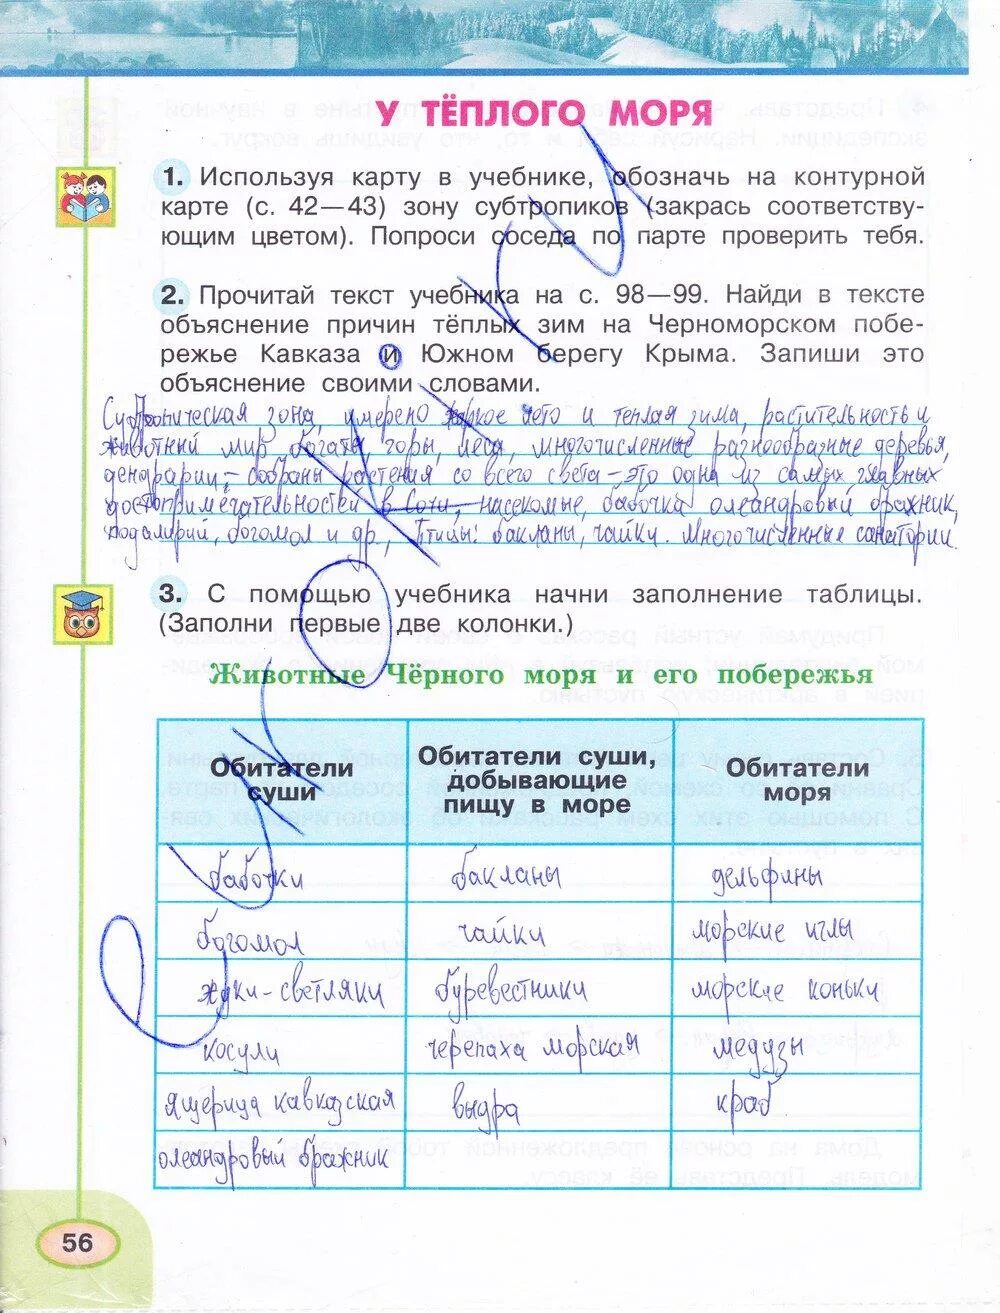 У ТЁПЛОГО МОРЯ
1. Используя карту в учебнике, обозначь на контурной
карте (с. 42—43) зону субтропиков (закрась соответству-
ющим цветом). Попроси соседа по парте проверить тебя.
2. Прочитай текст учебника на с. 98—99. Найди в тексте
объяснение причин тёплых зим на Черноморском побе-
режье Кавказа и Южном берегу Крыма. Запиши это
объяснение своими словами.
Субтропическая зона, умерено жаркое лето и теплая зима, растительность и
животный мир богаты, горы, леса, многочисленные разнообразные деревья,
дендрарии, - собраны растения со всего света - это одна из самых главных
достопримечательностей в Сочи, насекомые, бабочка олеандровый бражник,
подалирий, богомол и др., Птицы: бакланы, чайки. Многочисленные санатории.
3. С помощью учебника начни заполнение таблицы.
(Заполни первые две колонки.)
Животные Чёрного моря и его побережья
Обитатели суши
Обитатели суши, добывающие пищу в море
Обитатели моря
бабочки бакланы дельфины
богомол чайки морские иглы
жуки-светляки буревестники морские коньки
косули черепаха морская медузы
ящерица кавказская выдра краб
олеандровый бражник
56